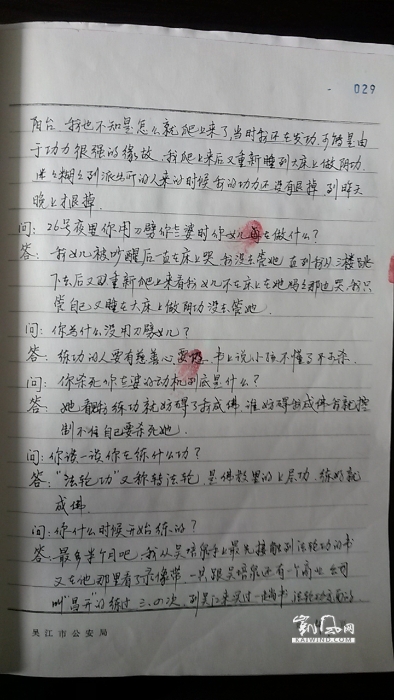 029
阳台。我也不知是怎么就爬上来了，当时我还在发功，可能是由
于功力很强的缘故。我爬上来后又重新睡到大床上做阴功，
迷迷糊糊到派出所的人来的时候我的功力还没有退掉，到昨天
晚上才退掉。
问：26号夜里你用刀劈你老婆时你女儿在做什么？
答：我女儿被吵醒后一直在床上哭，我没去管她，直到我从三楼跳
下去后又重新爬上来看我女儿不在床上在她妈那边哭，我只
管自己又睡在大床上做阴功没去管她。
问：你为什么没用刀劈女儿？
答：练功的人要有慈善心，书上说小孩不懂了不去杀。
问：你杀死你老婆的动机到底是什么？
答：她看我练功就妨碍了我成佛，谁妨碍我成佛我就控
制不住自己要杀死她。
问：你谈一谈你在练什么功？
答：“法轮功”又称转法轮，是佛教里的上层功，练好就
成佛。
问：你什么时候开始练的？
答：最多半个月吧。我从吴培泉手上最先接触到法轮功的书
又在他那里看了录像带，一只跟吴培泉还有一个商业公司
叫“昌开”的练过三、四次，到吴江来买过一些书
吴江市公安局
凯风网
KAIWIND.COM